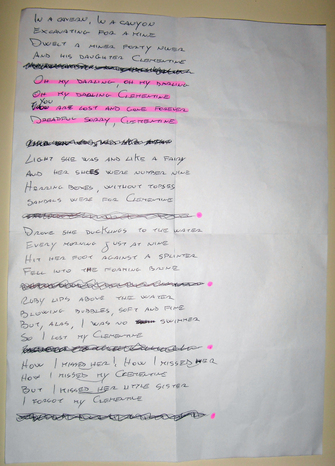 In a cavern, in a canyon
Excavating for a mine
Dwelt a miner forty niner
And his daughter Clementine
Oh my darling, oh my darling
Oh my darling Clementine
You are lost and gone forever
Dreadful sorry, Clementine
Light she was and like a fairy
And her shoes were number nine
Herring boxes, without topses
Sandals were for Clementine
Drove she ducklings to the water
Every morning just at nine
Hit her foot against a splinter
Fell into the foaming brine
Ruby lips above the water
Blowing bubbles, soft and fine
But, alas, I was no swimmer
So I lost my Clementine
How I missed her! How I missed her
How I missed my Clementine
But I kissed her little sister
I forgot my Clementine